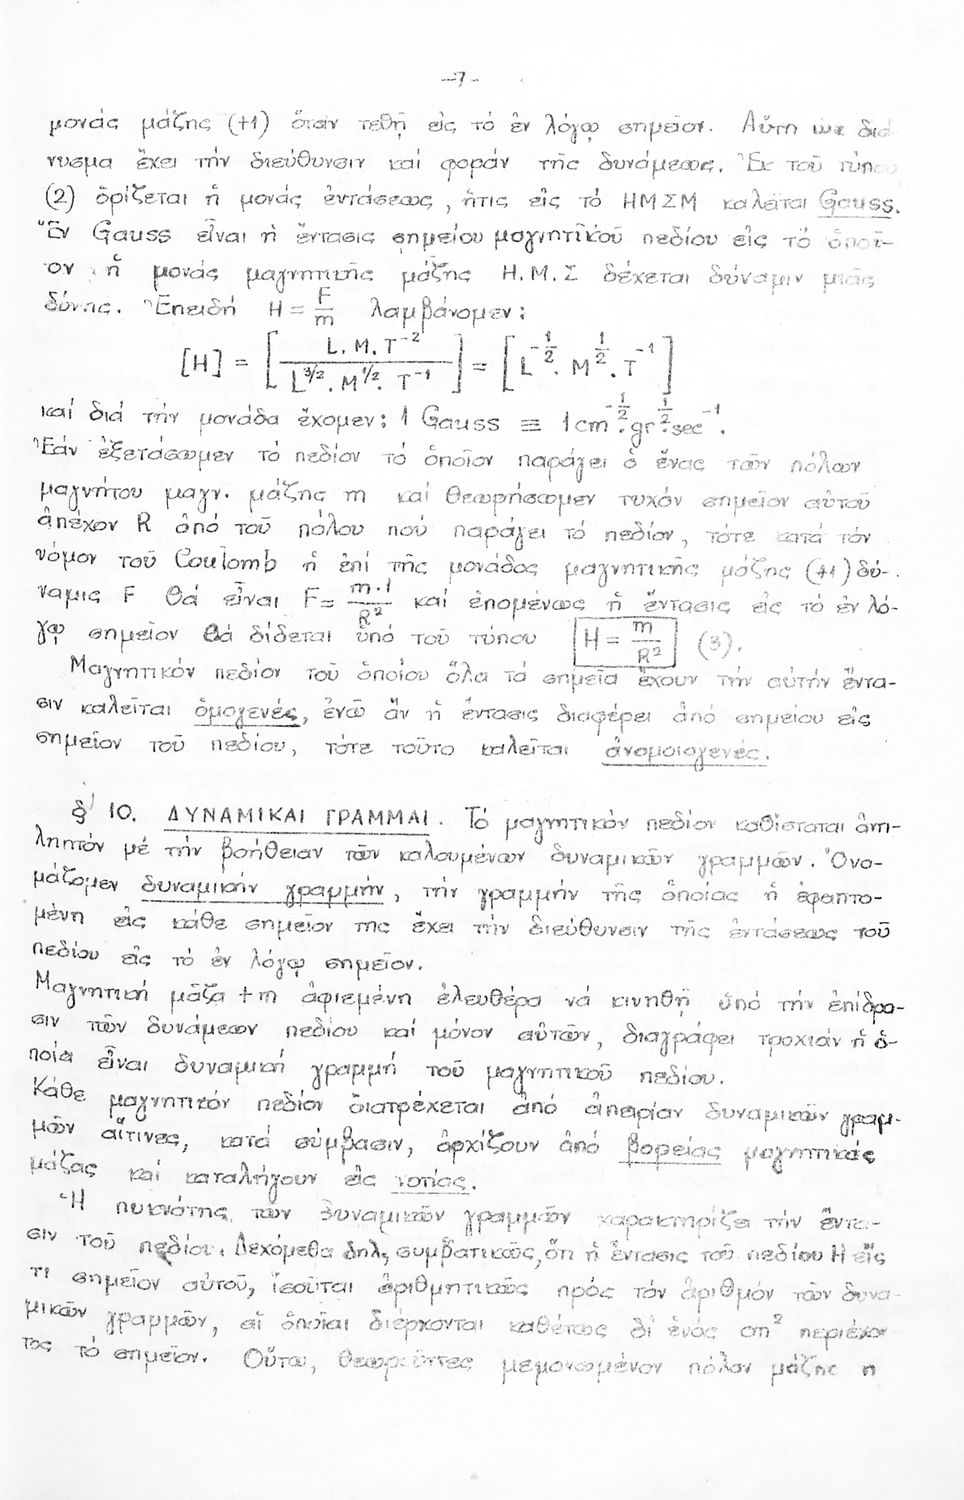 -7-
μονάς μάζης (+1) ὅταν τεθῇ εἰς τό ἐν λόγῳ σημεῖον. Αὕτη ὡς διά
νυσμα ἔχει τήν διεύθυνσιν καί φοράν τῆς δυνάμεως. Ἐκ τοῦ τύπου
(2) ὁρίζεται ἡ μονάς ἐντάσεως, ἥτις εἰς τό ΗΜΣΜ καλεῖται Gauss.
Ἕν Gauss εἶναι ἡ ἔντασις σημείου μαγνητικοῦ πεδίου εἰς τό ὁποῖ-
ον ἡ μονάς μαγνητικῆς μάζης Η.Μ.Σ δέχεται δύναμιν μιᾶς
δύνης. Ἐπειδή H = F/m λαμβάνομεν:
[H] = [L.M.T⁻² / L^3/2.M^1/2.T⁻¹] = [L^-1/2.M^1/2.T^-1]
καί διά τήν μονάδα ἔχομεν: 1 Gauss ≡ 1cm^-1/2.gr^1/2.sec^-1.
Ἐάν ἐξετάσωμεν τό πεδίον τό ὁποῖον παράγει ὁ ἕνας τῶν πόλων
μαγνήτου μαγν. μάζης m καί θεωρήσωμεν τυχόν σημεῖον αὐτοῦ
ἀπέχον R ἀπό τοῦ πόλου πού παράγει τό πεδίον, τότε κατά τόν
νόμον τοῦ Coulomb ἡ ἐπί τῆς μονάδος μαγνητικῆς μάζης (+1) δύ-
ναμις F θά εἶναι F = m.1/R² καί ἑπομένως ἡ ἔντασις εἰς τό ἐν λό-
γῳ σημεῖον θά δίδεται ὑπό τοῦ τύπου H = m/R² (3).
Μαγνητικόν πεδίον τοῦ ὁποίου ὅλα τά σημεῖα ἔχουν τήν αὐτήν ἔντα-
σιν καλεῖται ὁμογενές, ἐνῶ ἄν ἡ ἔντασις διαφέρει ἀπό σημείου εἰς
σημεῖον τοῦ πεδίου, τότε τοῦτο καλεῖται ἀνομοιογενές.
§ 10. ΔΥΝΑΜΙΚΑΙ ΓΡΑΜΜΑΙ. Τό μαγνητικόν πεδίον καθίσταται ἀντι-
ληπτόν μέ τήν βοήθειαν τῶν καλουμένων δυναμικῶν γραμμῶν. Ὀνο-
μάζομεν δυναμικήν γραμμήν, τήν γραμμήν τῆς ὁποίας ἡ ἐφαπτο-
μένη εἰς κάθε σημεῖον της ἔχει τήν διεύθυνσιν τῆς ἐντάσεως τοῦ
πεδίου εἰς τό ἐν λόγῳ σημεῖον.
Μαγνητική μᾶζα +m ἀφιεμένη ἐλευθέρα νά κινηθῇ ὑπό τήν ἐπίδρα-
σιν τῶν δυνάμεων πεδίου καί μόνον αὐτῶν, διαγράφει τροχιάν ἡ ὁ-
ποία εἶναι δυναμική γραμμή τοῦ μαγνητικοῦ πεδίου.
Κάθε μαγνητικόν πεδίον διατρέχεται ἀπό ἀπειρίαν δυναμικῶν γραμ-
μῶν αἵτινες, κατά σύμβασιν, ἀρχίζουν ἀπό βορείας μαγνητικάς
μάζας καί καταλήγουν εἰς νοτίας.
Ἡ πυκνότης τῶν δυναμικῶν γραμμῶν χαρακτηρίζει τήν ἔντα-
σιν τοῦ πεδίου. Δεχόμεθα δηλ, συμβατικῶς, ὅτι ἡ ἔντασις τοῦ πεδίου H εἴς
τι σημεῖον αὐτοῦ, ἰσοῦται ἀριθμητικῶς πρός τόν ἀριθμόν τῶν δυνα-
μικῶν γραμμῶν, αἱ ὁποῖαι διέρχονται καθέτως δι' ἑνός cm² περιέχον
τος τό σημεῖον. Οὕτω, θεωροῦντες μεμονωμένον πόλον μάζης